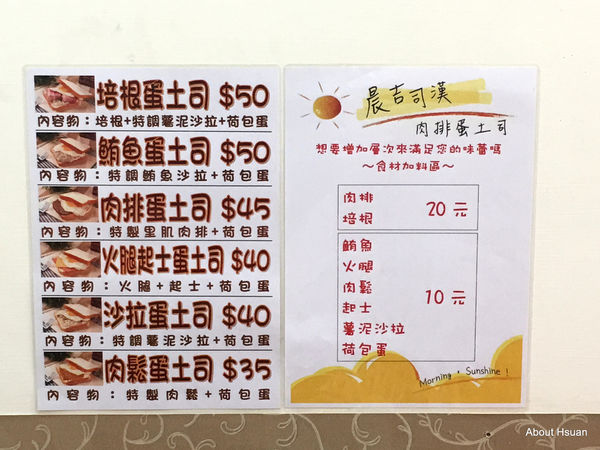 培根蛋土司 $50
內容物：培根+特調薯泥沙拉+荷包蛋
鮪魚蛋土司 $50
內容物：特調鮪魚沙拉+荷包蛋
肉排蛋土司 $45
內容物：特製里肌肉排+荷包蛋
火腿起士蛋土司 $40
內容物：火腿+起士+荷包蛋
沙拉蛋土司 $40
內容物：特調薯泥沙拉+荷包蛋
肉鬆蛋土司 $35
內容物：特製肉鬆+荷包蛋
晨吉司漢
肉排蛋土司
想要增加層次來滿足您的味蕾嗎
～食材加料區～
肉排
培根
20 元
鮪魚
火腿
肉鬆
起士
薯泥沙拉
荷包蛋
10 元
Morning，Sunshine！
About Hsuan